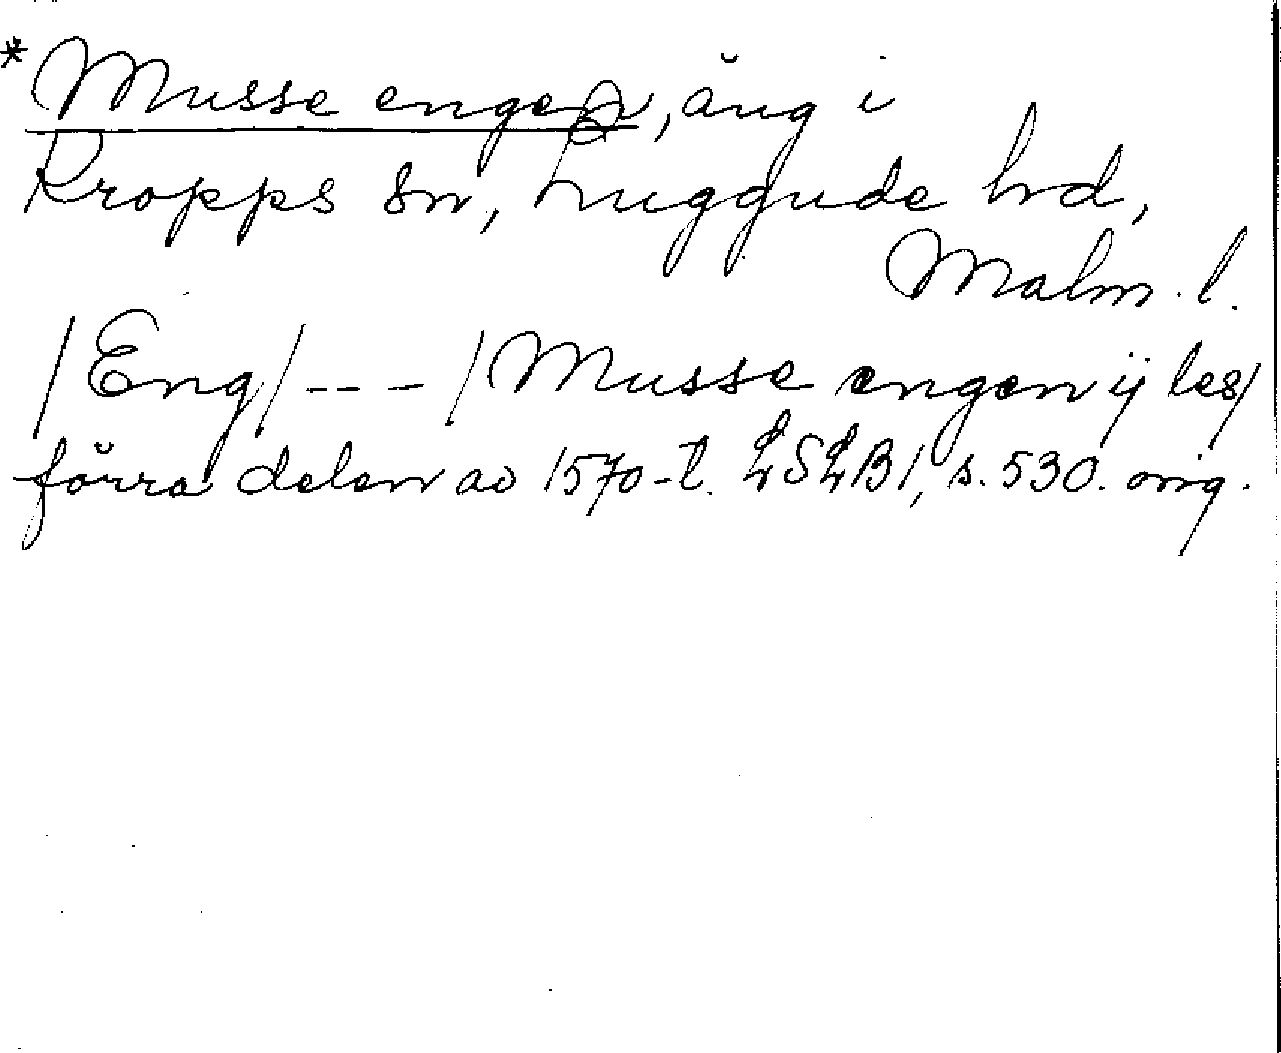 *Musse engen, äng i
Kropps sn, Luggude hd,
Malm. l.
/Eng/--- /Musse engen ij les/
förra delen av 1570-t. LSLB1, s. 530. orig.